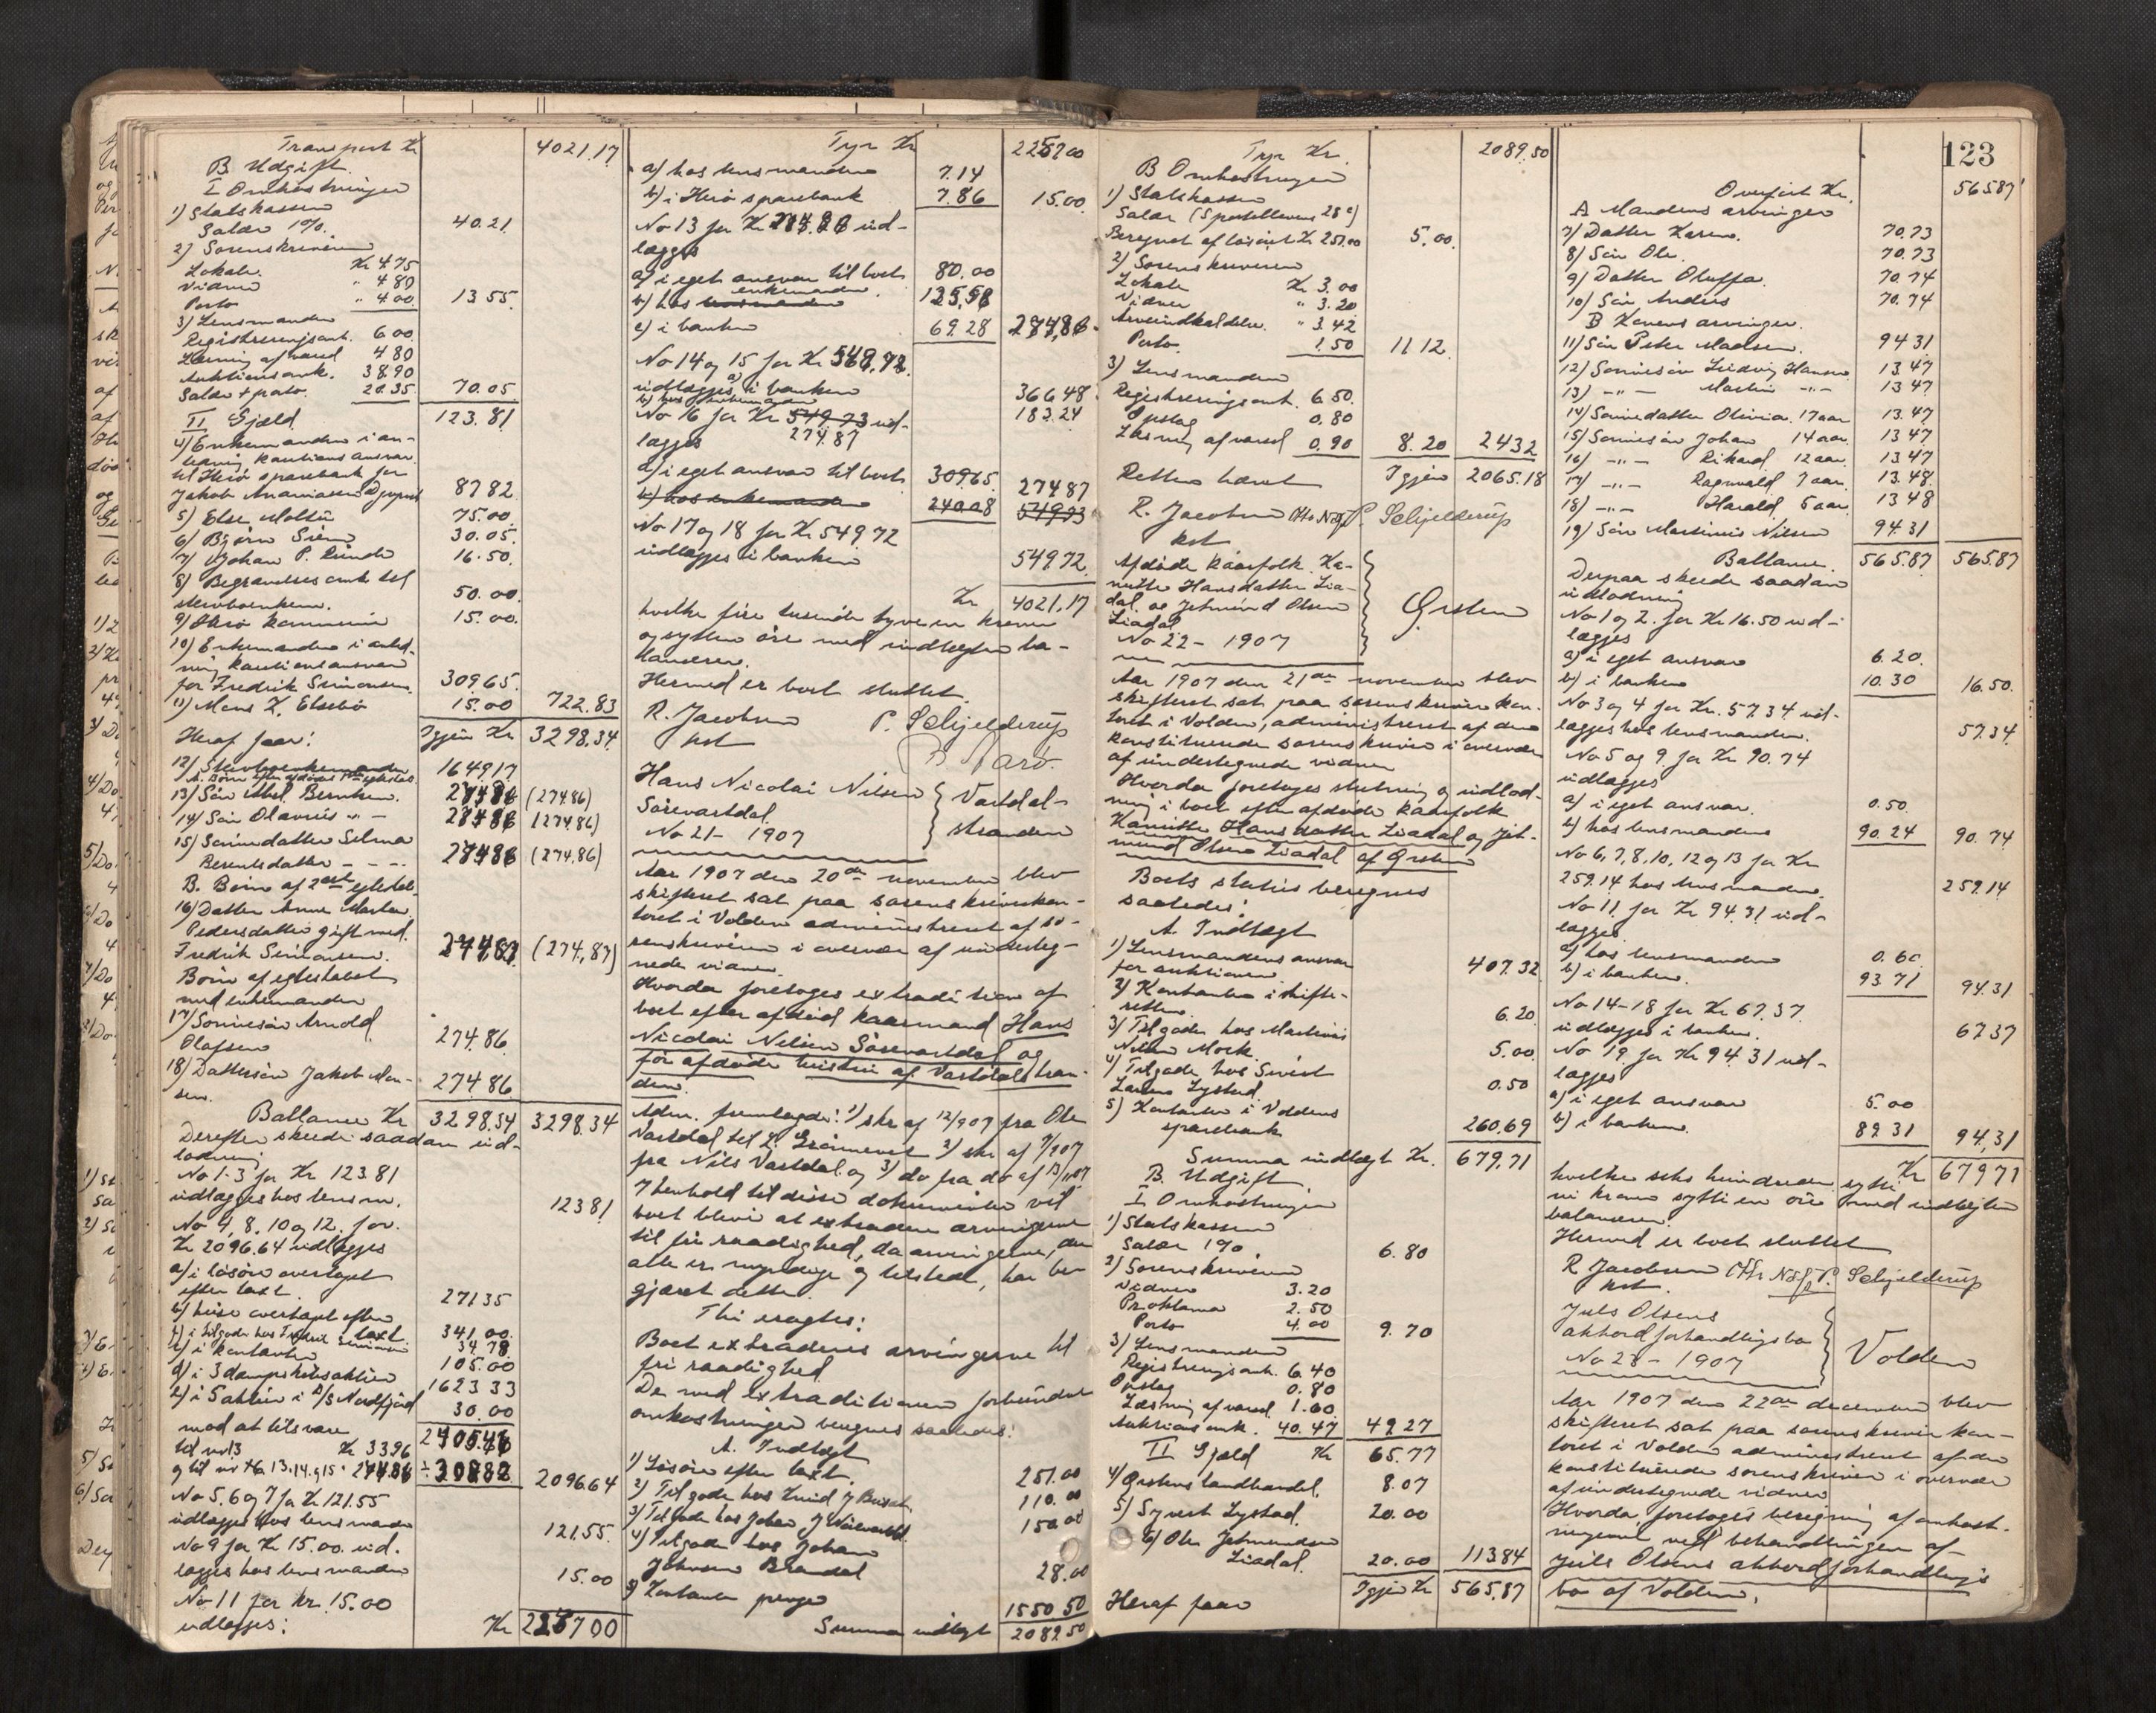 Transport Kr 4021.17
B Udgift.
I Omkostninger
1) Statskassen
Salær 1% 40.21
2) Sorenskriveren
Lokale Kr 4.75
Vidner " 4.80
Porto " 4.00 13.55
3) Lensmanden
Registreringsomk. 6.00
Læsning af varsel 4.80
Auktionsomk. 38.90
Salær + porto 20.35 70.05
II Gjæld 123.81
4) Enkemanden i an-
ledning kautionsansvar
til Herø sparebank for
Jakob Ananiassen 87.82
5) Else Moltu 75.00
6) Bjørn Siem 30.05
7) Johan P. Runde 16.50
8) Begravelsesomk til
50.00
9) Herø kommune 15.00
10) Enkemanden i anled-
ning kautionsansvar
for Fredrik Simonsen 309.65
11) Mons K. 15.00 722.83
Heraf faar: Igjen Kr 3298.34
12) Stervboenkemanden 1649.17
13) Søn Abel Berntsen 274.86 (274.86)
14) Søn Olavus " - 274.86 (274.86)
15) Sønnedatter Selma
Berentsdatter - - - 274.86 (274.86)
B. Børn af 2det egteskab
16) Datter Anne Marta
Pedersdatter gift med
Fredrik Simonsen 274.87 (274,87)
Børn af egteskabet
med enkemanden
17) Sønnesøn Arnold
Olafsen 274.86
18) Dattersøn Jakob Mon-
sen 274.86
Ballance Kr 3298.34 3298.34
Derefter skede saadan ud-
lodning
No 1-3 for Kr 123.81
udlægges hos lensm. 123.81
No 4, 8, 10 og 12 for
Kr 2096.64 udlægges
a) i løsøre overtaget
efter taxt 271.35
b) huse overtaget efter
taxt 341.00
34.78
c) i kontanter 105.00
d) i 3 dampskibsaktier 1623.33
e) i 5 aktier i A/S Nordfjord 30.00
mod at tilsvare 2405.46
til no 3 Kr 33.96
og til nr 13.14.g15 " 274.86 ÷ 308.82 2096.64
No 5, 6 og 7 for Kr 121.55
udlægges hos lensmanden 121.55
No 9 for Kr 15.00 ud-
lægges hos lensmanden 15.00
No 11 for Kr. 15.00
udlægges: Kr 2257.00
Trpr Kr 2257.00
a) hos lensmanden 7.14
b) i Herø sparebank 7.86 15.00
No 13 for Kr 274.86 ud-
lægges
a) i eget ansvar til boet 80.00
b) hos lensmanden enkemanden 125.58
c) i banken 69.28 274,86
No 14 og 15 for Kr 549,72
udlægges a) i banken 366.48
b) hos enkemanden 183.24
No 16 for Kr 549.73 ud-
lægges 274.87
a) i eget ansvar til boet 309.65 274.87
b) hos enkemanden 240.08 549.73
No 17 og 18 for Kr 549.72
udlægges i banken 549.72
Kr 4021.17
hvilke fire tusinde tyve en kroner
og sytten øre med indtægten ba-
lancerer.
Hermed er boet sluttet
R. Jacobsen P. Schjelderup
kst
Hans Nicolai Nilsen
Sørevartdal Vartdal-
No 21 - 1907 stranden
Aar 1907 den 20de november blev
skifteret sat paa sorenskriverkon-
toret i Volden administreret af so-
renskriveren i overvær af underteg-
nede vidner.
Hvorda foretoges extradition af
boet efter afdød kaarmand Hans
Nicolai Nilsen Sørevartdal og
før afdøde hustru af Vartdalstran-
den.
Adm. fremlagde: 1) skr af 12/907 fra Ole
Vartdal til L. 2) skr af 7/907
fra Nils Vartdal og 3) do fra do af 13/1107
I henhold til disse dokumenter vil
boet blive at extradere arvingerne
til fri raadighed, da arvingerne, der
alle er myndige og tilstede, har be-
gjæret dette.
Thi eragtes:
Boet extraderes arvingerne til
fri raadighed
De med extraditionen forbundne
omkostninger beregnes saaledes:
A. Indtægt
1) Løsøre efter taxt 251.00
2) Tilgode hos Knud J 110.00
3) Tilgode hos Johan J 150.00
4) Tilgode hos Johan
Johnsen Brandal 28.00
5) Kontante penge 1550.50
Summa indtægt 2089.50
Trpr Kr. 2089.50
B Omkostninger
1) Statskassen
Salær (Sportellovens 28 c)
Beregnet af løsøret Kr 251.00 5.00
2) Sorenskriveren
Lokale Kr. 3.00
Vidner " 3.20
Arveindkaldelse " 3.42
Porto 1.50 11.12
3) Lensmanden
Registreringsomk. 6.50
Opslag 0.80
Læsning af varsel 0.90 8.20 24.32
Retten hævet Igjen 2065.18
R. Jacobsen P. Schjelderup
kst
Afdøde kaarfolk Ka-
nutte Hansdatter Lia-
dal og Jetmund Olsen
Liadal Ørsten
No 22 - 1907
Aar 1907 den 21de november blev
skifteret sat paa sorenskriverkon-
toret i Volden, administreret af den
konstituerede sorenskriver i overvær
af undertegnede vidner
Hvorda foretoges slutning og udlod-
ning i boet efter afdøde kaarfolk
Kanutte Hansdatter Liadal og Jet-
mund Olsen Liadal af Ørsten
Boets status beregnes
saaledes:
A. Indtægt
1) Lensmandens ansvar
for auktionen 407.32
2) Kontanter i skifte-
retten 6.20
3) Tilgode hos Martinus
Nilsen Mork 5.00
4) Tilgode hos Sivert
Larsen Lystad 0.50
5) Kontanter i Voldens
sparebank 260.69
Summa indtægt Kr. 679.71
B. Udgift
I Omkostninger
1) Statskassen
Salær 1% 6.80
2) Sorenskriveren
Vidner 3.20
Proklama 2.50
Porto 4.00 9.70
3) Lensmanden
Registreringsomk. 6.40
Opslag 0.80
Læsning af varsel 1.60
Auktionsomk. 40.47 49.27
II Gjæld Kr 65.77
4) Ørstens landhandel 8.07
5) Sivert Lystad 20.00
6) Ole Jetmundsen
Liadal 20.00 113.84
Heraf faar Igjen Kr 565.87
123
Overført Kr. 565.87
A Mandens arvinger
7) Datter Karen 70.73
8) Søn Ole 70.73
9) Datter Oluffa 70.74
10) Søn Andreas 70.74
B Konens arvinger
11) Søn Peter Madsen 94.31
12) Sønnesøn Ludvig Hansen 13.47
13) -"- Martin -"- 13.47
14) Sønnedatter Olivia 17 aar 13.47
15) Sønnesøn Johan 14 aar 13.47
16) -"- Rikard 12 aar 13.47
17) -"- Ragnvald 7 aar 13.48
18) -"- Harald 5 aar 13.48
19) Søn Martinus Nilsen 94.31
Ballance 565.87 565.87
Derpaa skede saadan
udlodning
No 1 og 2 for Kr 16.50 ud-
lægges
a) i eget ansvar 6.20
b) i banken 10.30 16.50
No 3 og 4 for Kr. 57.34 ud-
lægges hos lensmanden 57.34
No 5 og 9 for Kr 90.74
udlægges
a) i eget ansvar 0.50
b) hos lensmanden 90.24 90.74
No 6, 7, 8, 10, 12 og 13 for Kr
259.14 hos lensmanden 259.14
No 11 for Kr 94.31 ud-
lægges
a) hos lensmanden 0.60
b) i banken 93.71 94.31
No 14-18 for Kr 67.37
udlægges i banken 67.37
No 19 for Kr 94.31 ud-
lægges
a) i eget ansvar 5.00
b) i banken 89.31 94.31
Kr 679.71
hvilke seks hundrede sytti
ni kroner sytti en øre med indtægten
balancerer.
Hermed er boet sluttet
R. Jacobsen P. Schjelderup
kst.
Juls Olsens
akkordforhandlingsbo Volden
No 23 - 1907
Aar 1907 den 22de december blev
skifteret sat paa sorenskriverkon-
toret i Volden administreret af den
konstituerede sorenskriver i overvær
af undertegnede vidner
Hvorda foretoges beregning af omkost-
ningerne ved behandlingen af
Juls Olsens akkordforhandlings
bo af Volden.